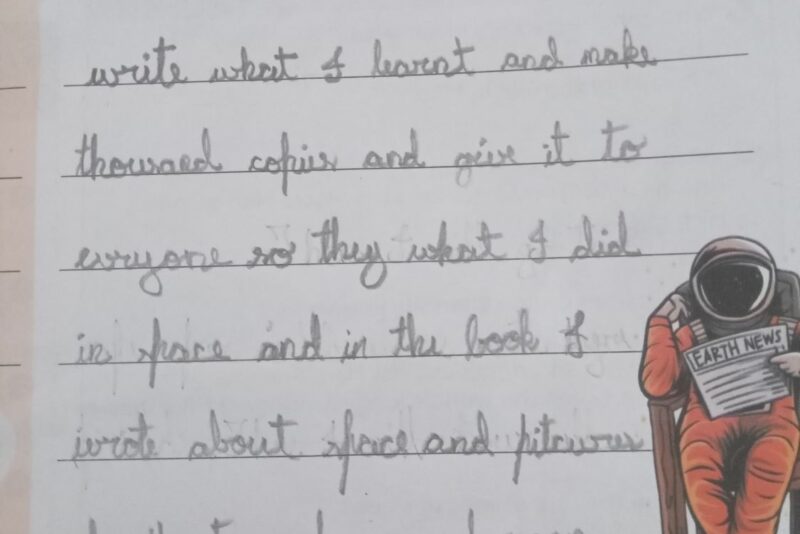 write what I learnt and make
thousaed copies and give it to
everyone so they what I did
in space and in the book I
wrote about space and pitcures
EARTH NEWS